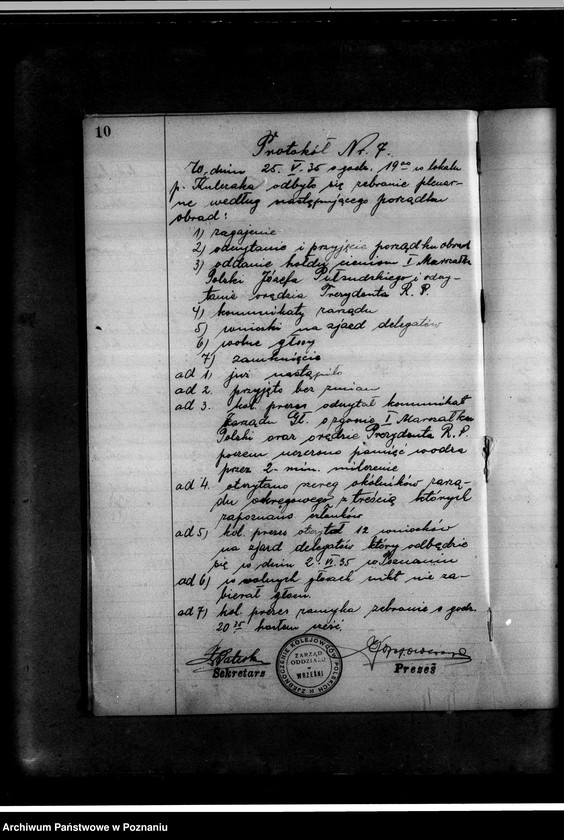 10
Protokół Nr. 7.
W dniu 25. V. 35 o godz. 19⁰⁰ w lokalu
p. Kulczaka odbyło się zebranie plenar-
ne według następującego porządku
obrad:
1) zagajenie
2) odczytanie i przyjęcie porządku obrad
3) oddanie hołdu cieniom I Marszałka
Polski Józefa Piłsudskiego i odczy-
tanie orędzia Prezydenta R. P.
4) komunikaty zarządu
5) wnioski na zjazd delegatów
6) wolne głosy
7) zamknięcie
ad 1) już nastąpiło
ad 2. przyjęto bez zmian
ad 3. kol. prezes odczytał komunikat
Zarządu Gł. o zgonie I Marszałka
Polski oraz orędzie Prezydenta R. P.
poczem uczczono pamięć wodza
przez 2-min. milczenie
ad 4. otczytano szereg okólników zarzą-
du okręgowego z treścią których
zapoznano członków
ad 5) kol. prezes otczytał 12 wniosków
na zjazd delegatów który odbędzie
się w dniu 2. VI. 35 w Poznaniu
ad 6) w wolnych głosach nikt nie za-
bierał głosu.
ad 7) kol. prezes zamyka zebranie o godz.
20 hasłem cześć.
Sekretarz
ZJEDNOCZENIE KOLEJOWCÓW POLSKICH
ZARZĄD
ODDZIAŁU
w
WRZEŚNI
Prezes
Archiwum Państwowe w Poznaniu